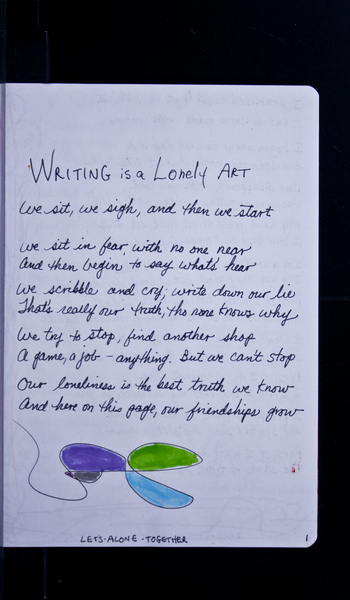 WRITING is a Lonely ART
We sit, we sigh, and then we start
We sit in fear, with no one near
And then begin to say what's hear
We scribble and cry; write down our lie
That's really our truth, tho none knows why
We try to stop, find another shop
A game, a job - anything. But we can't stop
Our loneliness is the best truth we know
And here on this page, our friendships grow
LET'S-ALONE-TOGETHER
1